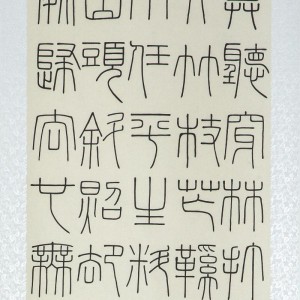 莫聽穿林打
竹杖芒鞋
任平生料
山頭斜照却
歸去也無